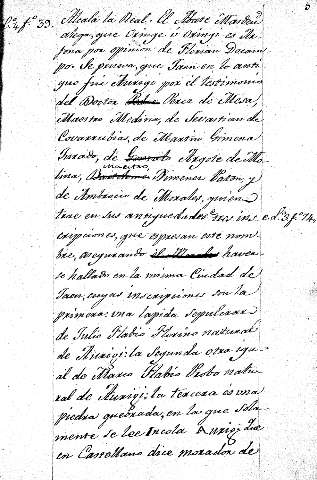 5
L.4 fº 39. Alcala la Real. El Abad Maxdan
alega, que Oringe ú Oringi es Ar
jona por opinion de Florian Docam
po. Se prueva, que Jaen en lo anti
guo fue Aurigi por el testimonio
del Doctor Perez de Mesa,
Maestro Medina, de Sevastian de
Covarrubias, de Martin Gimena
Jurado, de Gonzalo Argote de Mo
lina, Maestro Bartolome Ximenez Paton, y
de Ambrosio de Morales, quien
trae en sus antiguedades tres ins- c. L. 3 fº 74.
cripciones, que expresan este nom
bre, asegurando haver
se hallado en la misma Ciudad de
Jaen, cuyas inscripciones son la
primera: una lapida sepulcrar
de Julio Flabio Florino natural
de Aurigi: la segunda otra igu
al de Marco Flabio Probo natu
ral de Aurigi: la tercera es una
piedra quebrada, en la que sola
mente se lee Incola Aurigi; que
en Castellano dice morador de